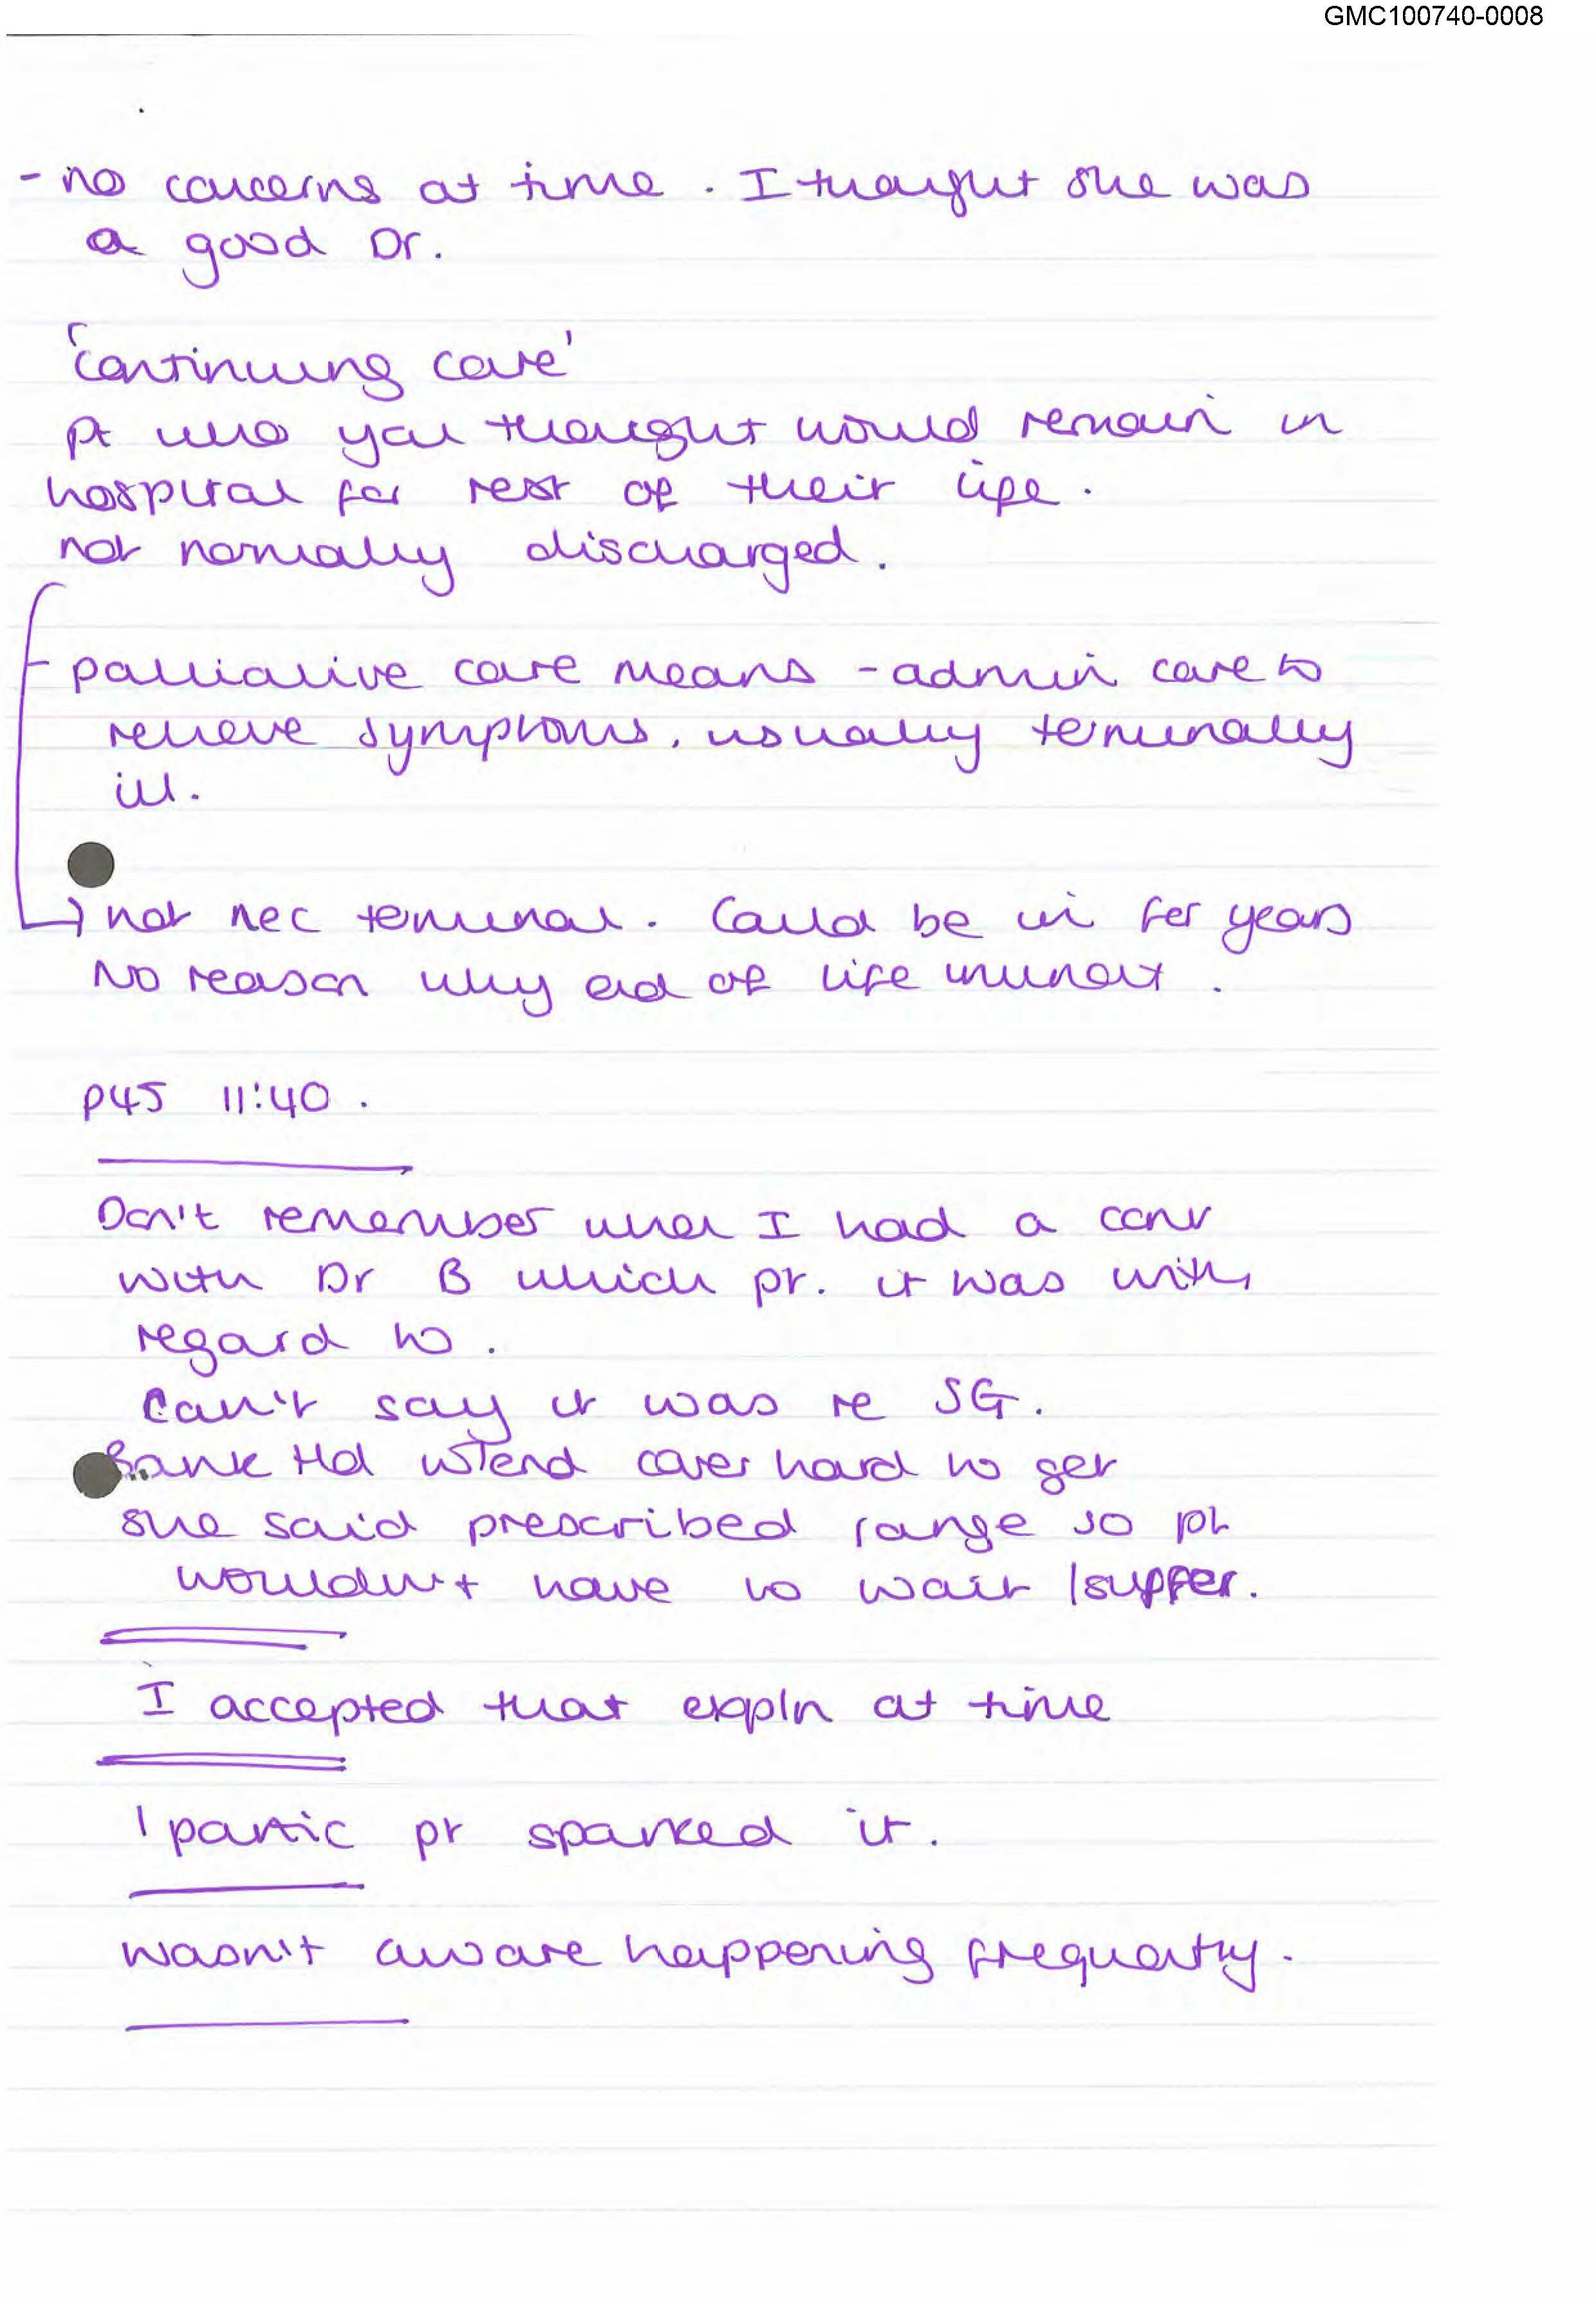 GMC100740-0008
- no concerns at time. I thought she was
a good Dr.
'continuing care'
Pt who you thought would remain in
hospital for rest of their life.
not normally discharged.
- palliative care means - admin care to
relieve symptoms, usually terminally
ill.
→ not nec terminal. Could be in for years
No reason why end of life imminent.
p45 11:40.
Don't remember when I had a conv
with Dr B which pt. it was with
regard to.
Can't say it was re SG.
Bank Hol w'end cover hard to get
she said prescribed range so pt
wouldn't have to wait / suffer.
I accepted that expln at time
1 partic pt sparked it.
wasn't aware happening frequently.